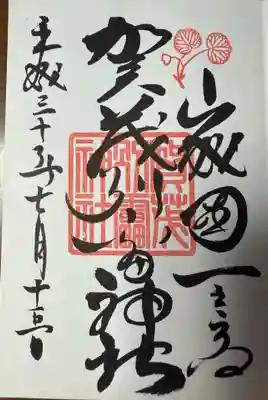 山城国一之宮
賀茂別雷神社
平成三十年七月十三日
賀茂別雷神社